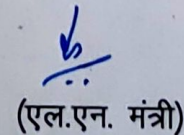 (एल.एन. मंत्री)